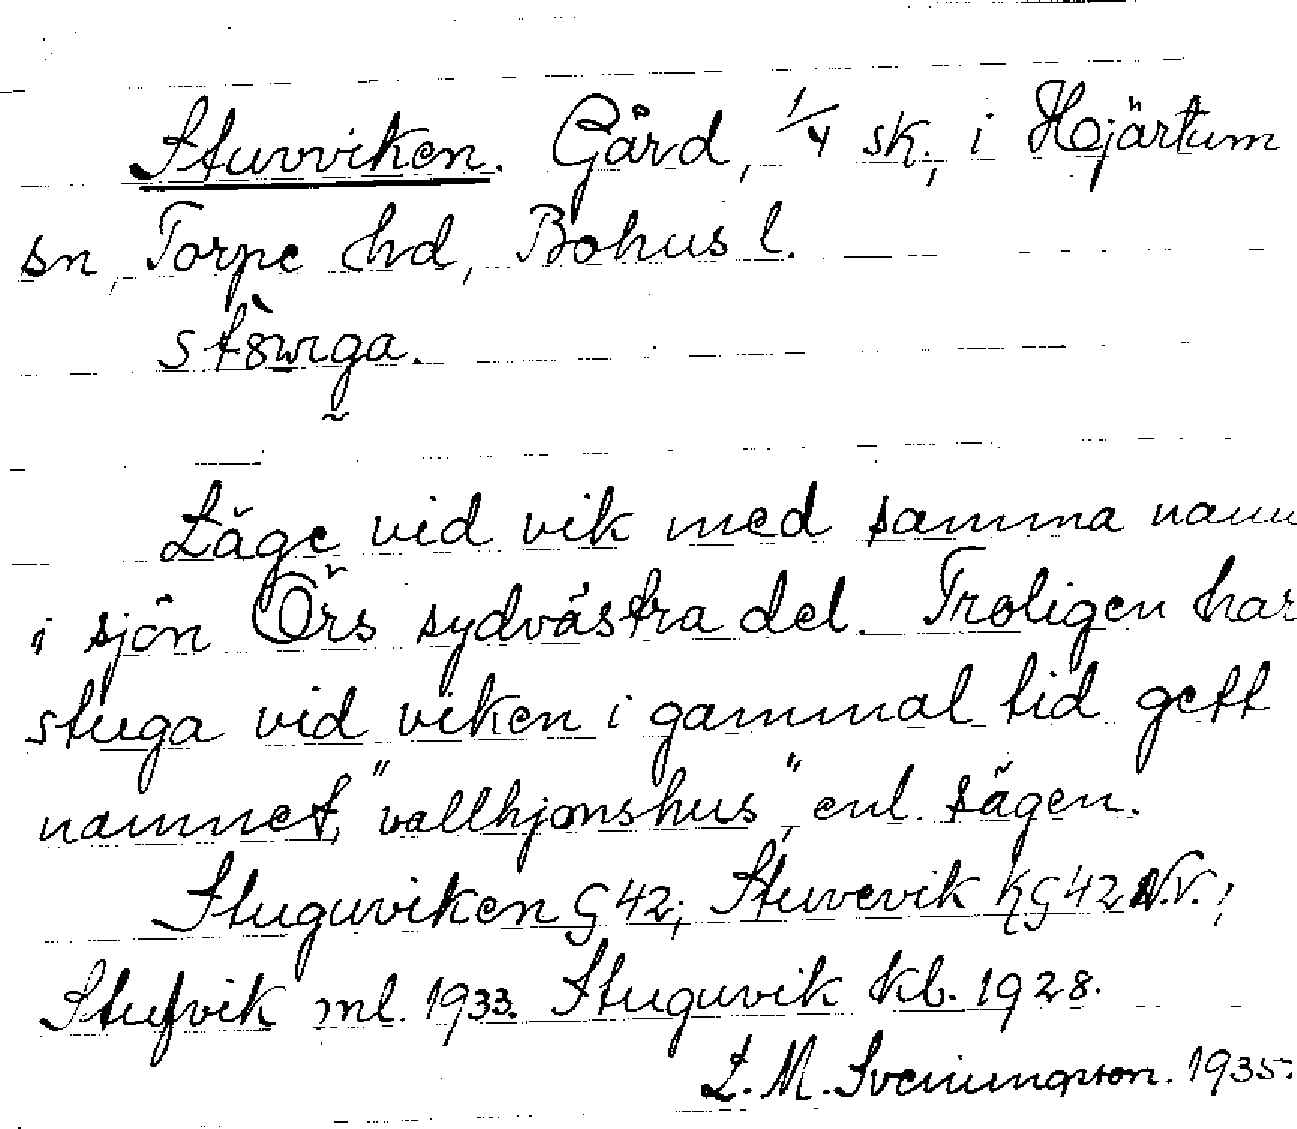 Stuvviken. Gård, 1/4 sk., i Hjärtum
sn, Torpe hd, Bohus l.
Läge vid vik med samma namn
i sjön Örs sydvästra del. Troligen har
stuga vid viken i gammal tid gett
namnet, "vallhjonshus", enl. sägen.
Stuguviken G 42; Stuvevik KG 42 N.V.;
Stufvik ml. 1933. Stuguvik kb. 1928.
L. M. Svenungsson. 1935.